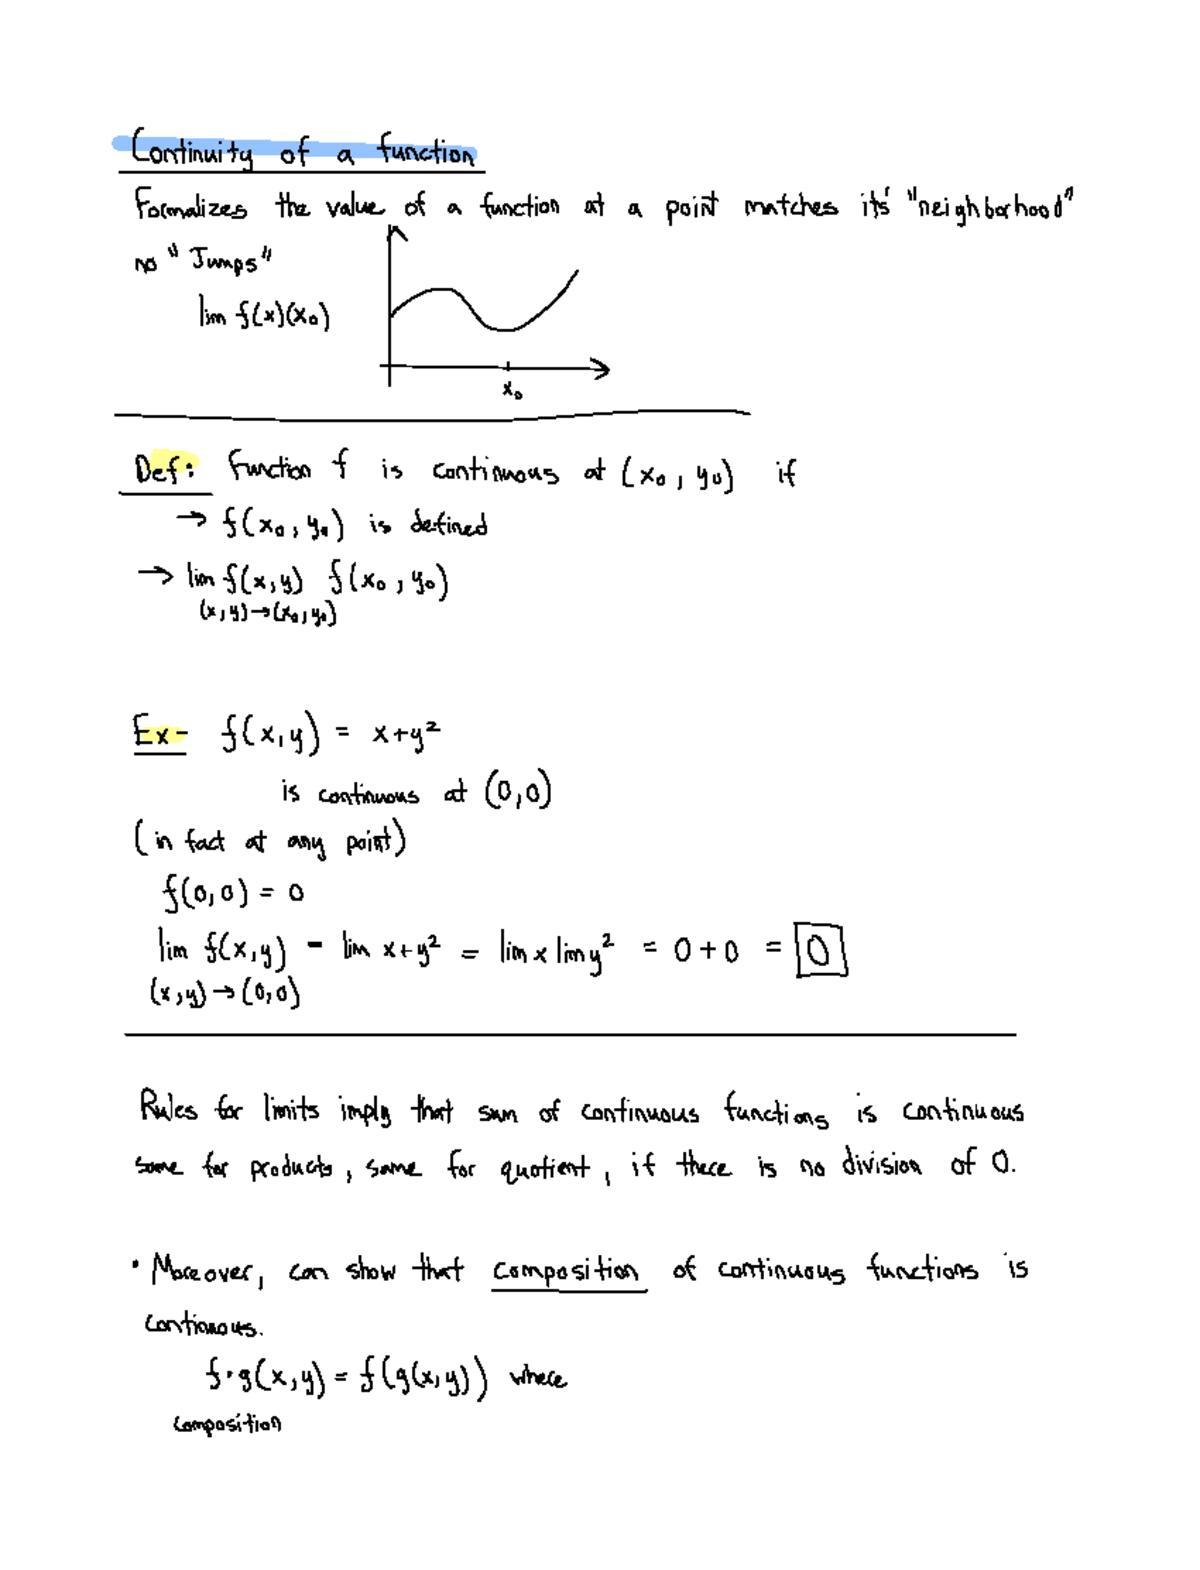 Continuity of a function
Formalizes the value of a function at a point matches its' "neighborhood"
no "Jumps"
lim f(x)(x₀)
x₀
Def: Function f is continuous at (x₀, y₀) if
→ f(x₀, y₀) is defined
→ lim f(x,y) f(x₀, y₀)
(x,y)→(x₀,y₀)
Ex- f(x,y) = x+y²
is continuous at (0,0)
(in fact at any point)
f(0,0) = 0
lim f(x,y) - lim x+y² = lim x lim y² = 0+0 = 0
(x,y)→(0,0)
Rules for limits imply that sum of continuous functions is continuous
same for products, same for quotient, if there is no division of 0.
• Moreover, can show that composition of continuous functions is
continuous.
f·g(x,y) = f(g(x,y)) where
composition